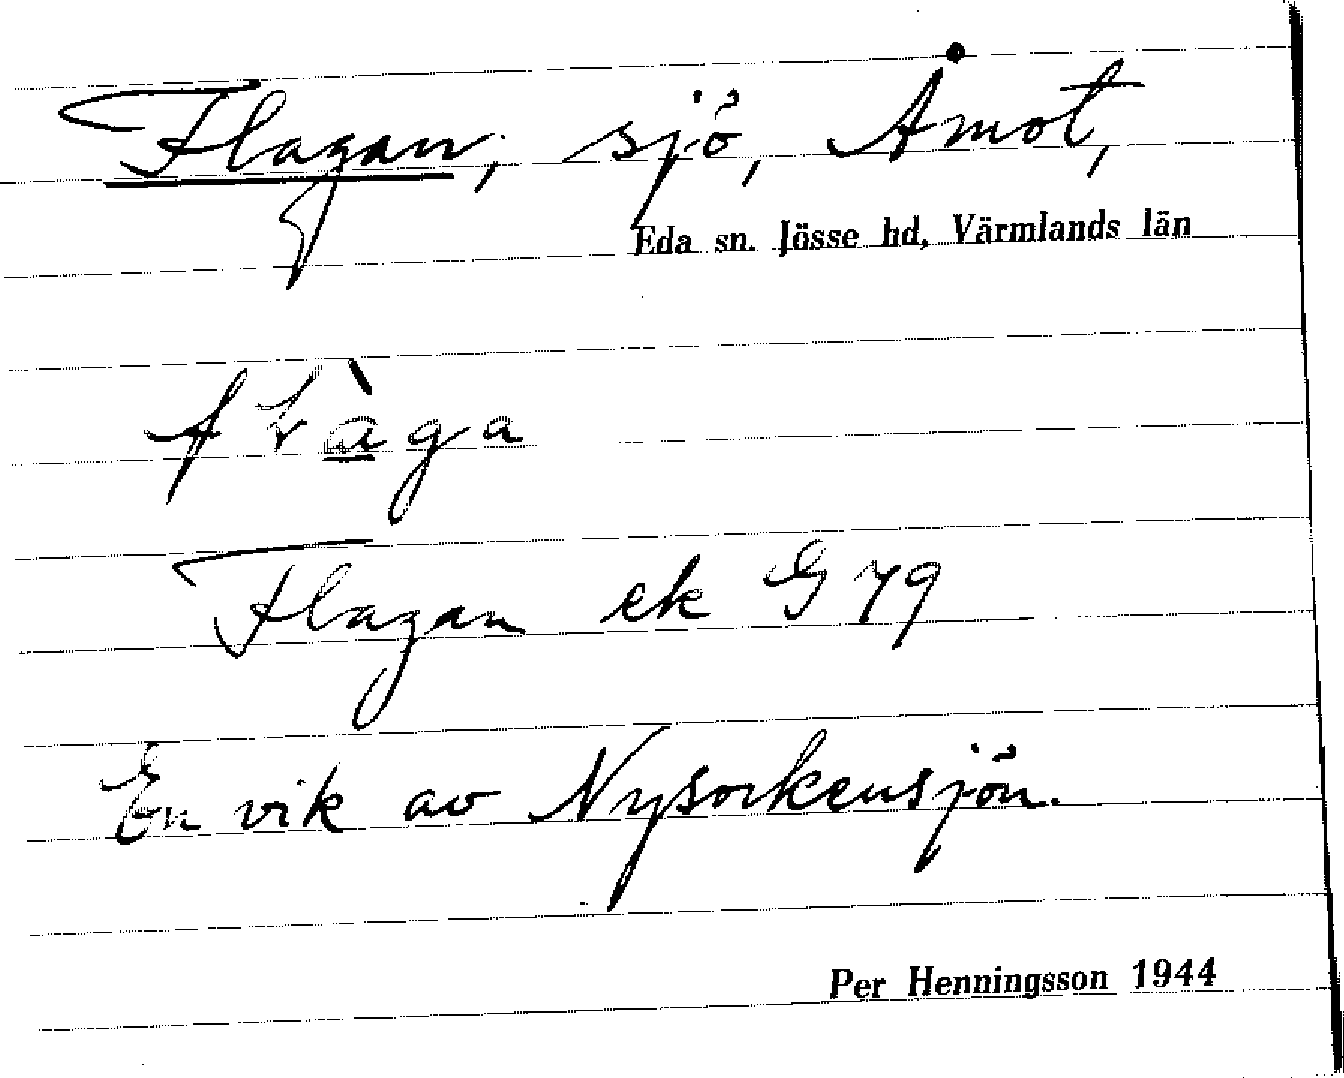 Flagan, sjö, Åmot,
Eda sn. Jösse hd, Värmlands län
Flagan ek G 79
En vik av Nysockensjön.
Per Henningsson 1944